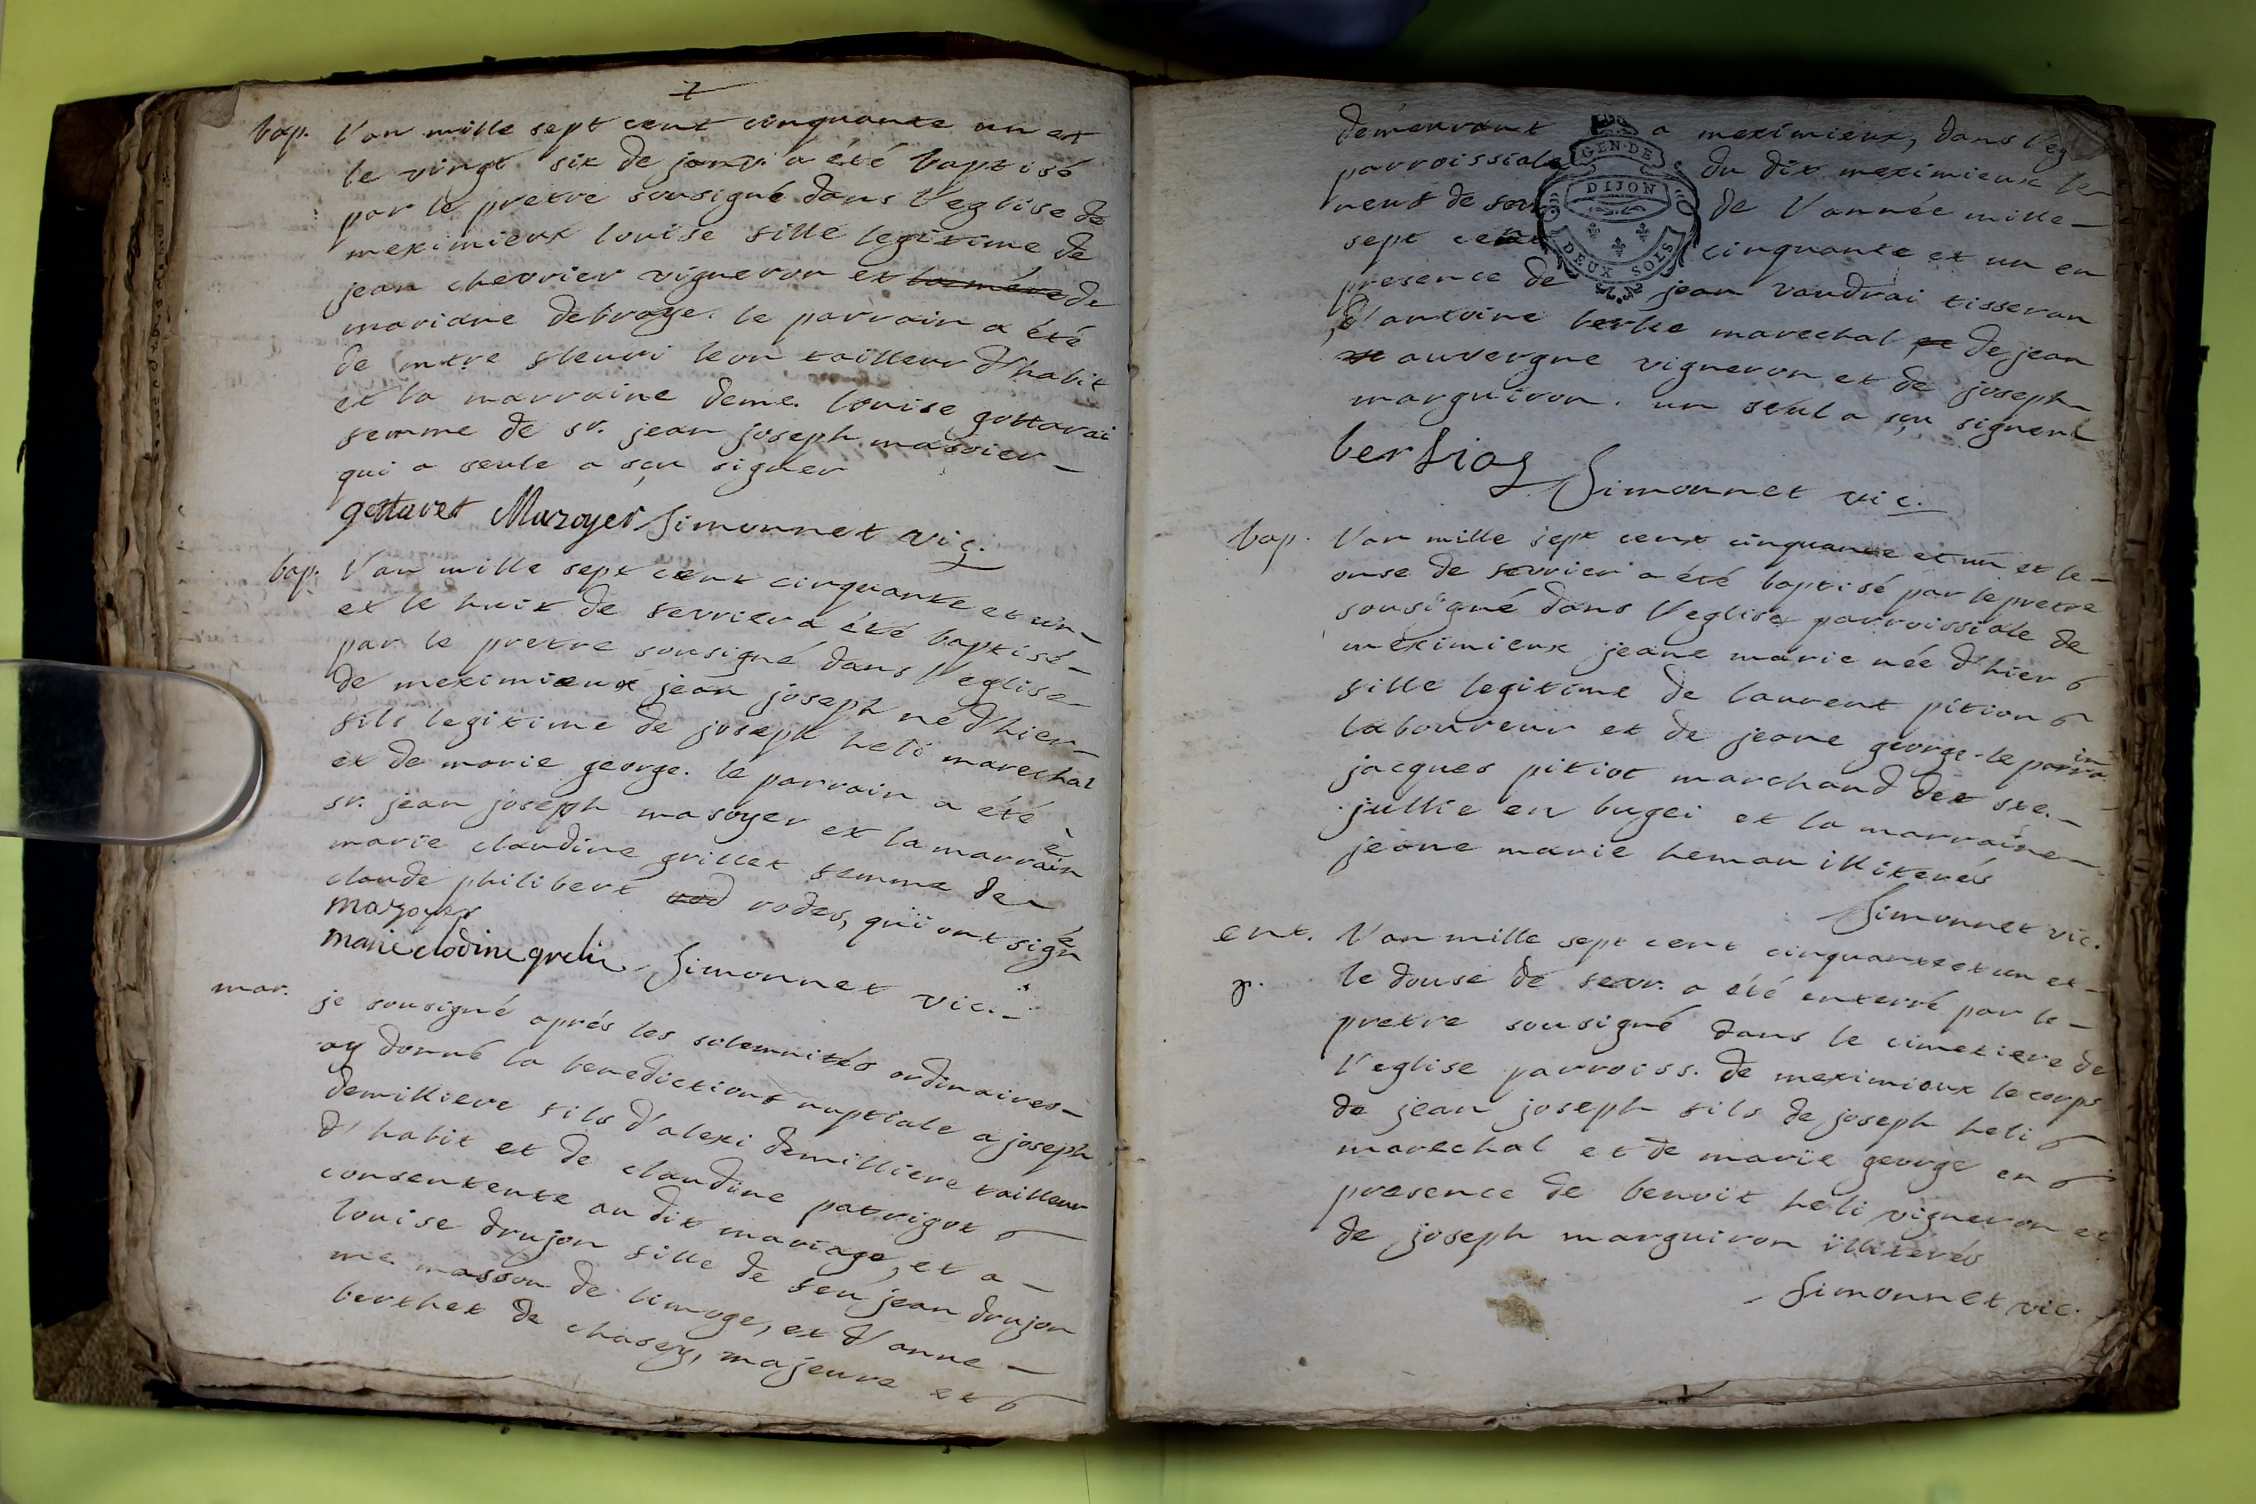 bap. l'an mille sept cent cinquante un et
le vingt six de janv. a été baptisé
par le pretre sousigné dans l'eglise de
meximieux louise fille legitime de
jean chevrier vigneron et la mére de
mariane debroye. le parrain a été
de mtre fleuri leon tailleur d'habit
et la marraine deme. louise gottarai
femme de sr. jean joseph masoier
qui a seule a sçu signer
gottaret Mazoyer Simonnet vic.
bap. l'an mille sept cent cinquante et un
et le huit de fevrier a été baptisé
par le pretre sousigné dans l'eglise
de meximieux jean joseph né d'hier
fils legitime de joseph heli marechal
et de marie george. le parrain a été
sr. jean joseph masoyer et la marraine
marie claudine grillet femme de
claude philibert rod rodes, qui ont signé
mazoyer
marie clodine grelie Simonnet vic.
mar. je sousigné aprés les solemnités ordinaires
ay donné la benediction nuptiale a joseph
demilliere fils d'alexi demilliere tailleur
d'habit et de claudine patrigot
consentente au dit mariage, et a
louise drujon fille de feu jean drujon
me. masson de limoge, et d'anne
berthet de chasey, majeure et
demeurant a meximieux, dans l'eg
parroissiale du dit meximieux le
neuf de fevr de l'année mille
sept cent cinquante et un en
presence de jean vaudrai tisseran
d'antoine marechal et de jean
auvergne vigneron et de joseph
marguiron. un seul a sçu signer
Simonnet vic.
GEN. DE
DIJON
DEUX SOLS
bap. l'an mille sept cent cinquante et un et le
onse de fevrier a été baptisé par le pretre
sousigné dans l'eglise parroissiale de
méximieux jeane marie née d'hier
fille legitime de laurent pition
laboureur et de jeane george. le parrain
jacques pitiot marchand de ste.
jullie en bugei et la marraine
jeane marie heman illiterés
Simonnet vic.
ent. l'an mille sept cent cinquante et un et
p. le douse de fevr. a été enterré par le
pretre sousigné dans le cimetiere de
l'eglise parroiss. de meximieux le corps
de jean joseph fils de joseph heli
marechal et de marie george en
presence de benoit heli vigneron et
de joseph marguiron illiterés
Simonnet vic.